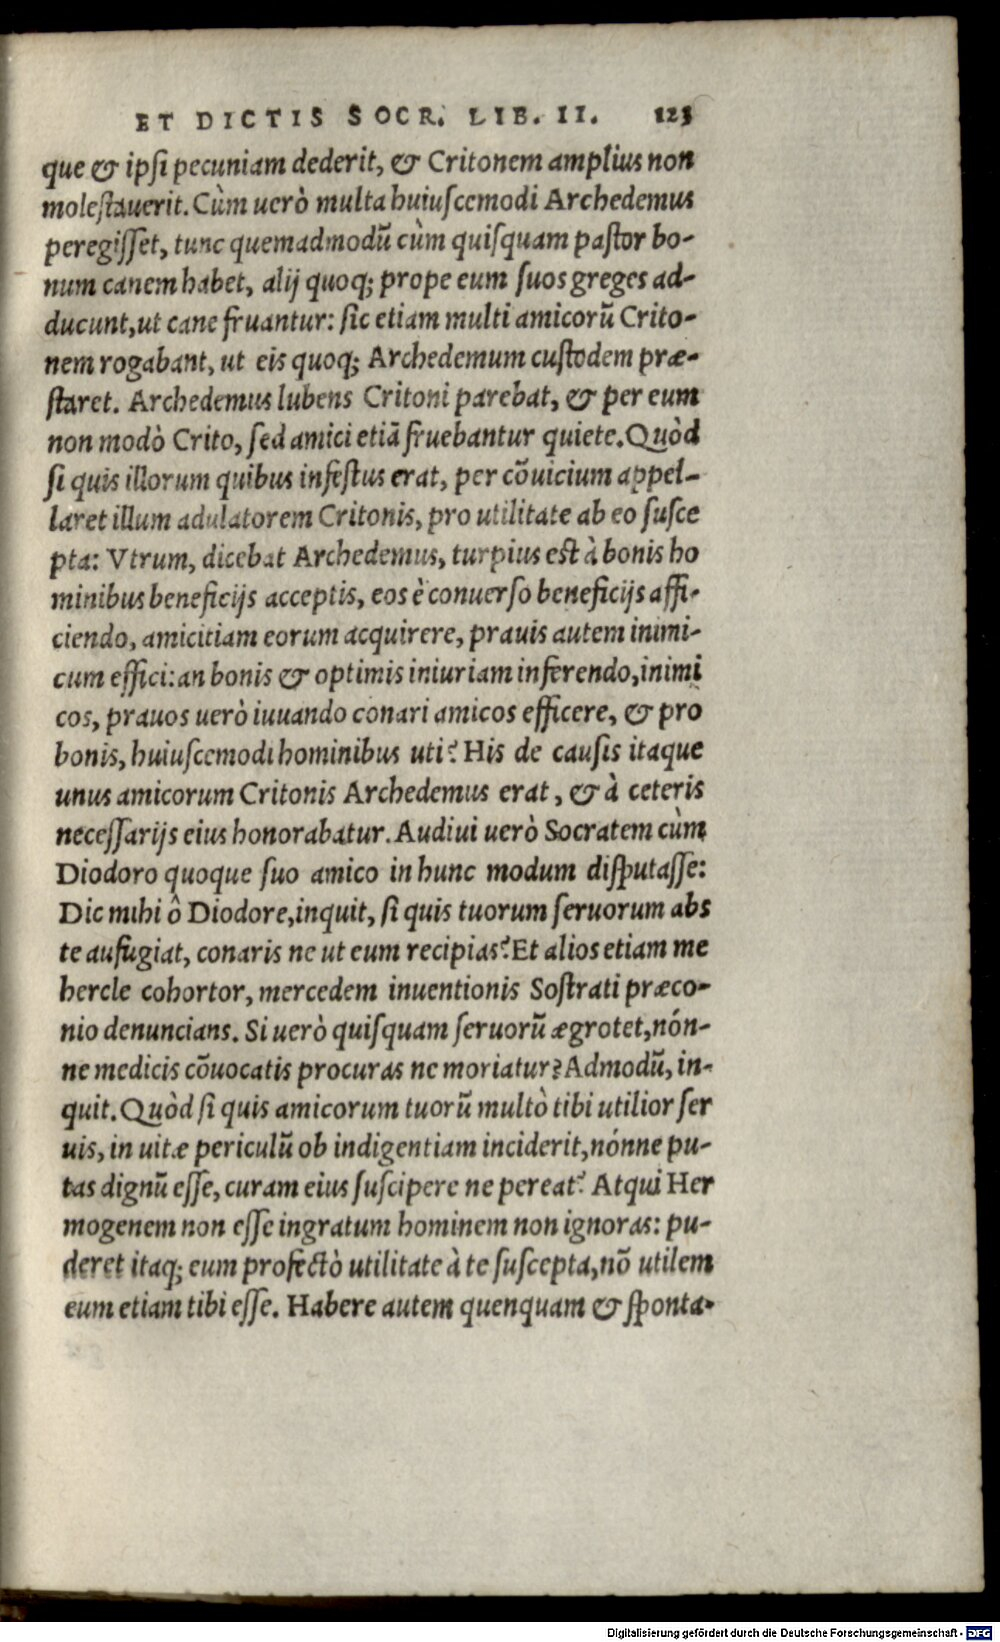 ET DICTIS SOCR. LIB. II. 123
que & ipsi pecuniam dederit, & Critonem amplius non
molestauerit. Cùm uerò multa huiuscemodi Archedemus
peregisset, tunc quemadmodũ cùm quisquam pastor bo-
num canem habet, alij quoq; prope eum suos greges ad-
ducunt, ut cane fruantur: sic etiam multi amicorũ Crito-
nem rogabant, ut eis quoq; Archedemum custodem præ-
staret. Archedemus lubens Critoni parebat, & per eum
non modò Crito, sed amici etiã fruebantur quiete. Quòd
si quis illorum quibus infestus erat, per cõuicium appel-
laret illum adulatorem Critonis, pro utilitate ab eo susce
pta: Vtrum, dicebat Archedemus, turpius est à bonis ho
minibus beneficijs acceptis, eos è conuerso beneficijs affi-
ciendo, amicitiam eorum acquirere, prauis autem inimi-
cum effici: an bonis & optimis iniuriam inferendo, inimi
cos, prauos uerò iuuando conari amicos efficere, & pro
bonis, huiuscemodi hominibus uti? His de causis itaque
unus amicorum Critonis Archedemus erat, & à ceteris
necessarijs eius honorabatur. Audiui uerò Socratem cùm
Diodoro quoque suo amico in hunc modum disputasse:
Dic mihi ô Diodore, inquit, si quis tuorum seruorum abs
te aufugiat, conaris ne ut eum recipias? Et alios etiam me
hercle cohortor, mercedem inuentionis Sostrati præco-
nio denuncians. Si uerò quisquam seruorũ ægrotet, nón-
ne medicis cõuocatis procuras ne moriatur? Admodũ, in-
quit. Quòd si quis amicorum tuorũ multò tibi utilior ser
uis, in uitæ periculũ ob indigentiam inciderit, nónne pu-
tas dignũ esse, curam eius suscipere ne pereat? Atqui Her
mogenem non esse ingratum hominem non ignoras: pu-
deret itaq; eum profectò utilitate à te suscepta, nõ utilem
eum etiam tibi esse. Habere autem quenquam & sponta-
Digitalisierung gefördert durch die Deutsche Forschungsgemeinschaft - DFG